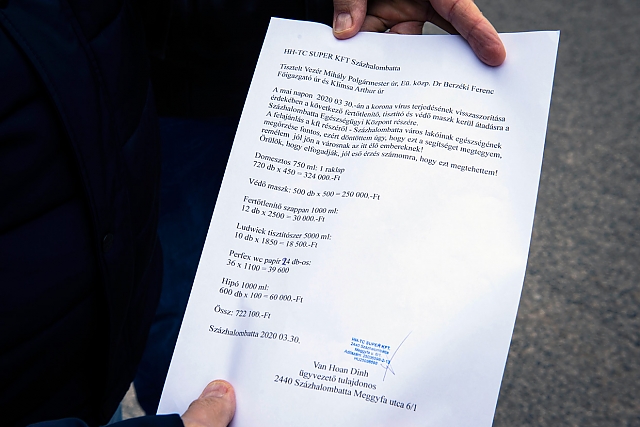 HH-TC SUPER KFT Százhalombatta
Tisztelt Vezér Mihály Polgármester úr, Eü. közp. Dr Berzéki Ferenc
Főigazgató úr és Klimsa Arthur úr
A mai napon 2020 03 30.-án a korona vírus terjedésének visszaszorítása
érdekében a következő fertőtlenítő, tisztító és védő maszk kerül átadásra a
Százhalombatta Egészségügyi Központ részére.
A felajánlás a kft részéről - Százhalombatta város lakóinak egészségének
megőrzése fontos, ezért döntöttem úgy, hogy ezt a segítséget megtegyem,
remélem jól jön a városnak az itt élő embereknek!
Örülök, hogy elfogadják, jól eső érzés számomra, hogy ezt megtehettem!
Domesztos 750 ml: 1 raklap
720 db x 450 = 324 000.-Ft
Védő maszk: 500 db x 500 = 250 000.-Ft
Fertőtlenítő szappan 1000 ml:
12 db x 2500 = 30 000.-Ft
Ludwick tisztítószer 5000 ml:
10 db x 1850 = 18 500.-Ft
Perfex wc papír 24 db-os:
36 x 1100 = 39 600
Hipó 1000 ml:
600 db x 100 = 60 000.-Ft
Össz: 722 100.-Ft
Százhalombatta 2020 03.30.
HH-TC SUPER KFT
2440 Százhalombatta
Meggyfa u. 6/1
Van Hoan Dinh
ügyvezető tulajdonos
2440 Százhalombatta Meggyfa utca 6/1